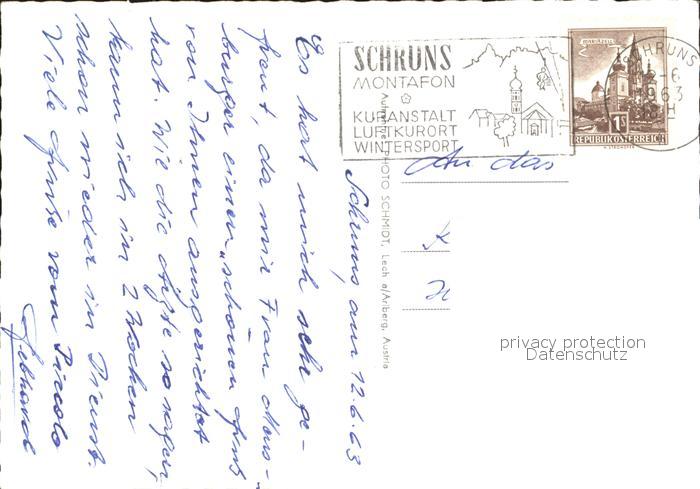 Schruns, am 12.6.63
Es hat mich sehr ge-
freut, da mir Frau
burger einen „schönen Gruß
von Ihnen ausgerichtet
hat. Wie die Ärzte so sagen,
kann ich in 2 Wochen
schon wieder in Dienst.
Viele Grüße vom Piccolo
Gebhard
SCHRUNS
MONTAFON
KURANSTALT
LUFTKURORT
WINTERSPORT
MARIAZELL
1S
REPUBLIK ÖSTERREICH
SCHRUNS
1963
PHOTO SCHMIDT, Lech a/Arlberg, Austria
An das
privacy protection
Datenschutz